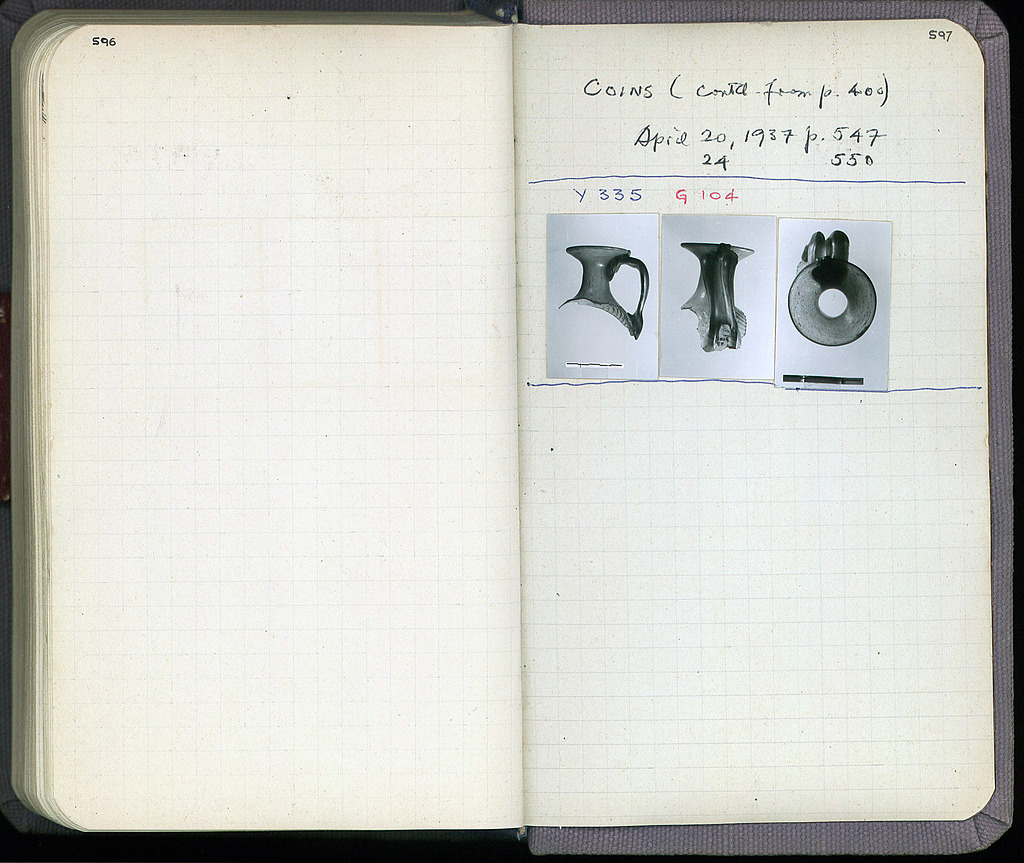 596
597
COINS ( contd. from p. 400)
April 20, 1937 p. 547
24 550
Y 335 G 104